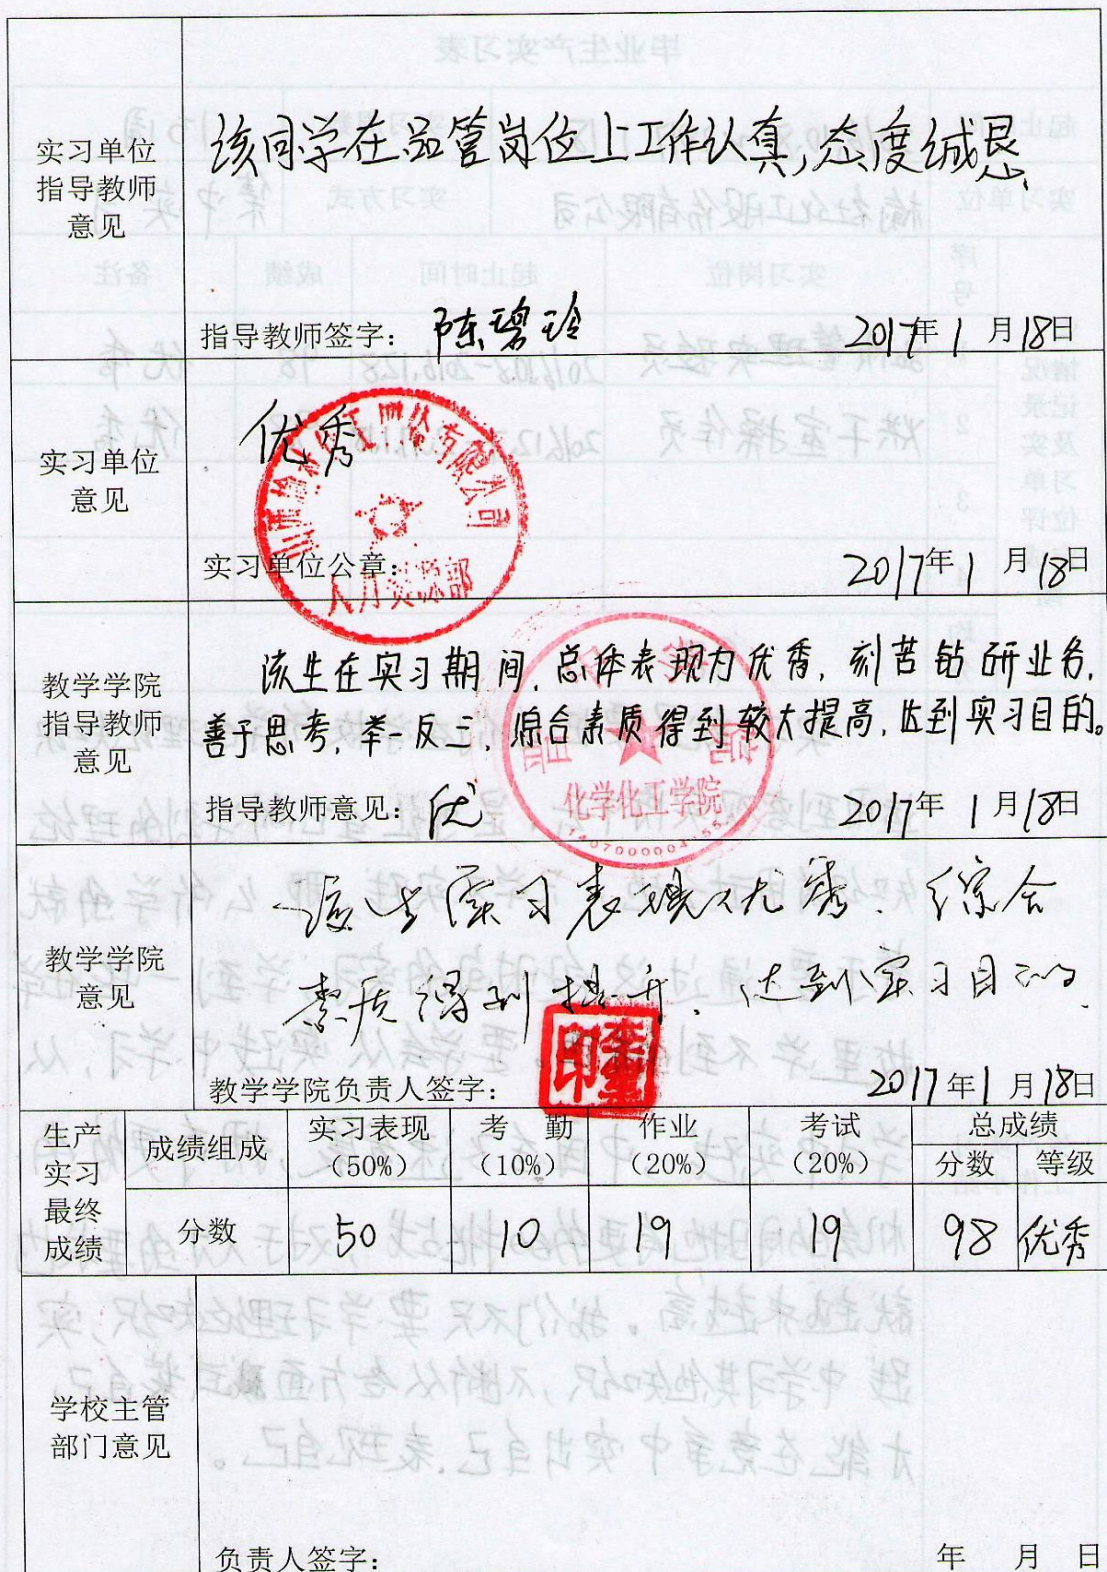 实习单位
指导教师
意见
该同学在品管岗位上工作认真,态度诚恳.
指导教师签字: 陈碧玲 2017年1月18日
实习单位
意见
优秀
有限公司
人力资源部
实习单位公章: 2017年1月18日
教学学院
指导教师
意见
该生在实习期间,总体表现为优秀,刻苦钻研业务,
善于思考,举一反三,综合素质得到较大提高,达到实习目的。
化学化工学院
指导教师意见: 优 2017年1月18日
教学学院
意见
该生实习表现优秀、综合
素质得到提升、达到实习目的
教学学院负责人签字: 2017年1月18日
生产
实习
最终
成绩
成绩组成 实习表现 考 勤 作业 考试 总成绩
(50%) (10%) (20%) (20%) 分数 等级
分数 50 10 19 19 98 优秀
学校主管
部门意见
负责人签字: 年 月 日